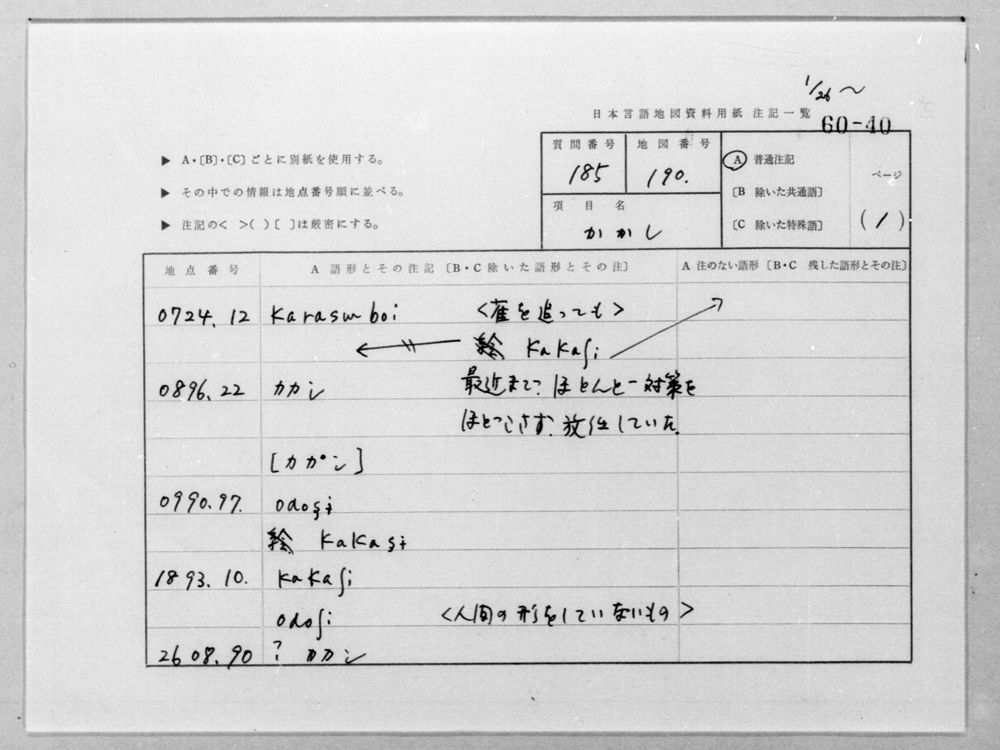 1/26〜
日本言語地図資料用紙 注記一覧
60-40
▶ A・〔B〕・〔C〕ごとに別紙を使用する。
▶ その中での情報は地点番号順に並べる。
▶ 注記の< >( )[ ]は厳密にする。
質問番号 地図番号
185 190.
項目名
かかし
A 普通注記
〔B 除いた共通語〕
〔C 除いた特殊語〕
ページ
(1)
地点番号 A 語形とその注記〔B・C除いた語形とその注〕 A 注のない語形〔B・C 残した語形とその注〕
0724.12 karasuɯboi <雀を追っても>
絵 kakaʃi
0896.22 カカシ 最近まで、ほとんど対策を
ほどこさず、放任していた。
[カカ゜シ]
0990.97. odoşï
絵 kakaşï
1893.10. kakaʃi
odoʃi <人間の形をしていないもの>
2608.90 ? カカシ